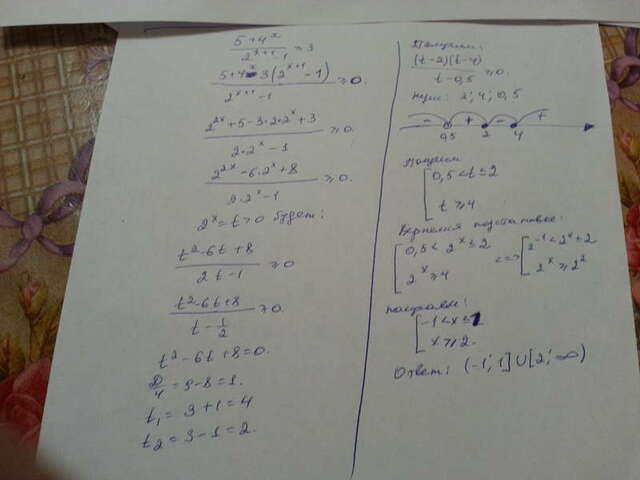 5+4^x / 2^(x+1)-1 ≥ 3
5+4^x-3(2^(x+1)-1) / 2^(x+1)-1 ≥ 0.
2^(2x)+5-3·2·2^x+3 / 2·2^x-1 ≥ 0.
2^(2x)-6·2^x+8 / 2·2^x-1 ≥ 0.
2^x=t>0 будет:
t²-6t+8 / 2t-1 ≥ 0
t²-6t+8 / t-1/2 ≥ 0.
t²-6t+8=0.
D/4=9-8=1.
t₁=3+1=4
t₂=3-1=2.
Получим:
(t-2)(t-4) / t-0,5 ≥ 0.
Нули: 2; 4; 0,5
- + - +
0,5 2 4
Получим
[ 0,5<t≤2
t≥4
Вернемся подстановке:
[ 0,5<2^x≤2 <=> [ 2^(-1)<2^x≤2
2^x≥4 2^x≥2²
[ -1<x≤1
x≥2.
Ответ: (-1; 1]∪[2; ∞)